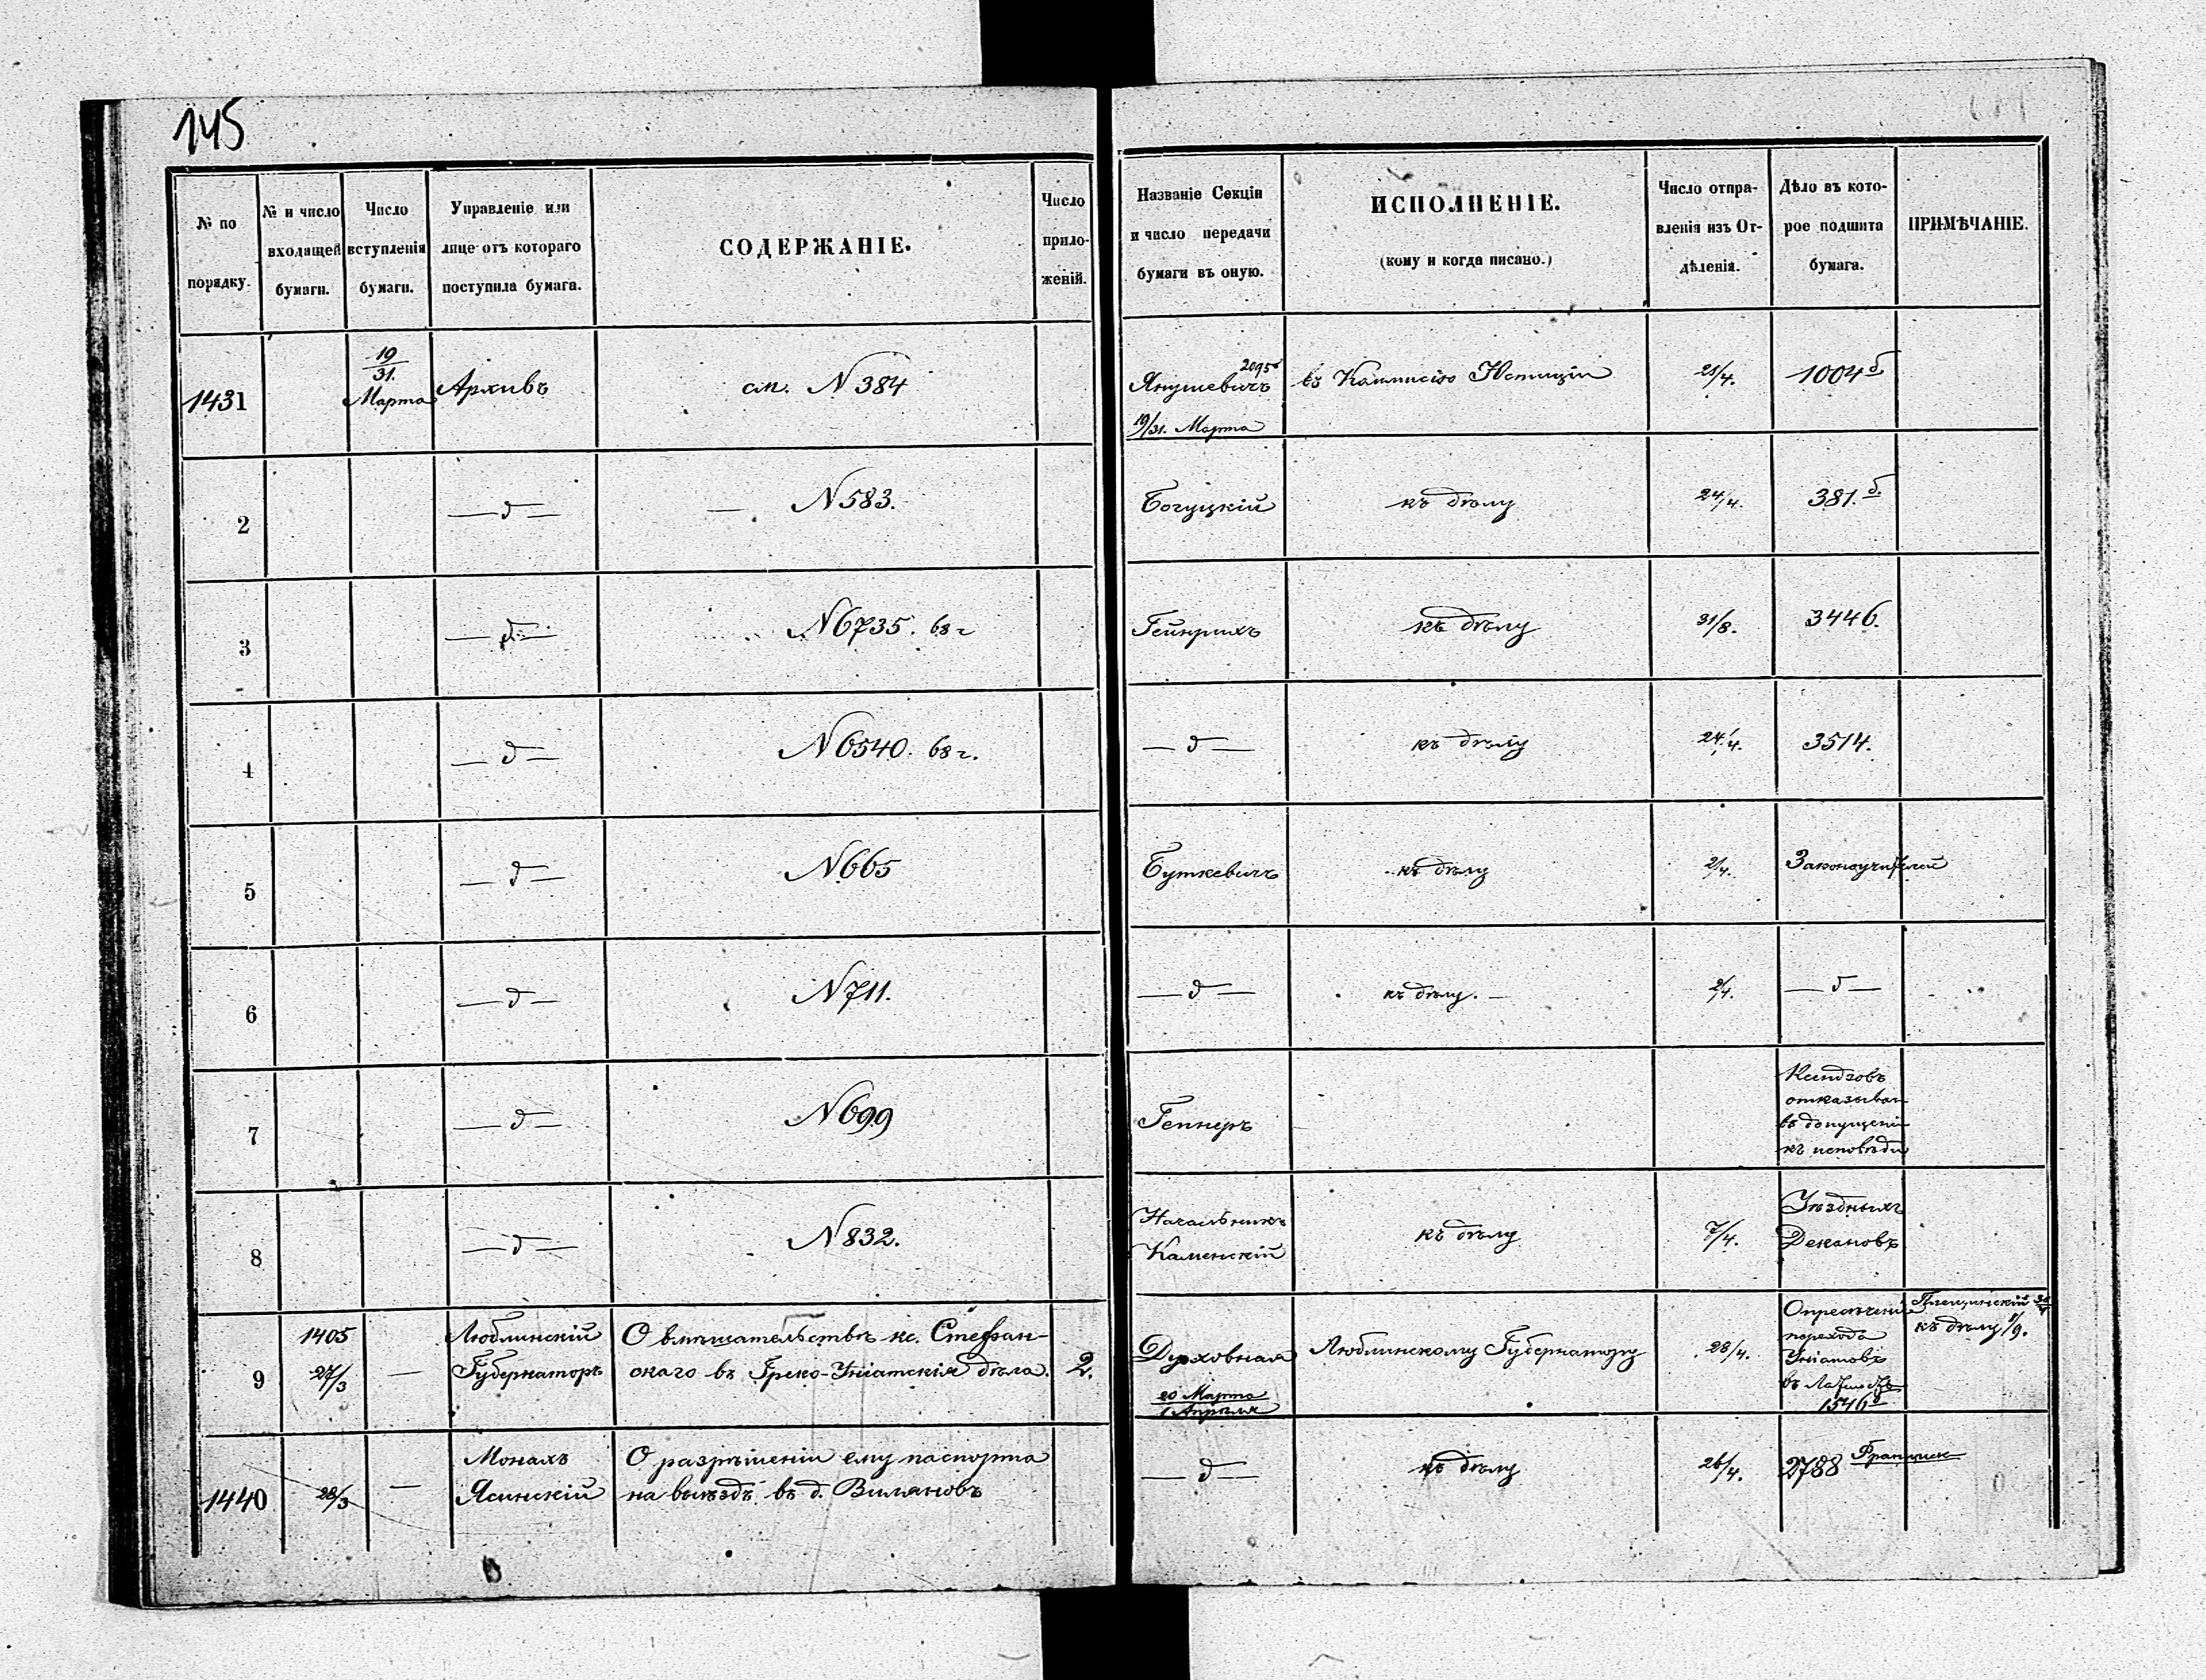 145
№ по порядку.
№ и число входящей бумаги.
Число вступленія бумаги.
Управленіе или лице отъ котораго поступила бумага.
СОДЕРЖАНІЕ.
Число приложеній.
Названіе Секціи и число передачи бумаги въ оную.
ИСПОЛНЕНІЕ.
(кому и когда писано.)
Число отправленія изъ Отдѣленія.
Дѣло въ которое подшита бумага.
ПРИМѢЧАНІЕ.
1431 19/31. Марта Архивъ см. N 384 Янушевичъ 19/31. Марта въ Коммисію Юстиціи 21/4. 1004 б
2 — д — — N 583. Богуцкій къ дѣлу 24/4. 381. б.
3 — д — N 6735. 68 г Гейнрихъ къ дѣлу 31/8. 3446.
4 — д — N 6540. 68 г. — д — къ дѣлу 24/4. 3514.
5 — д — N 665 Буткевичъ къ дѣлу 2/4. Законоучителей
6 — д — N 711. — д — къ дѣлу. — 2/4. — д —
7 — д — N 699 Геппнеръ
Ксендзовъ
отказыван
въ допущеніи
къ исповѣди
8 — д — N 832. Начальникъ Каменскій къ дѣлу 7/4. Уѣздныхъ Декановъ
9 1405 27/3 — Люблинскій Губернаторъ
О вмѣшательствѣ кс. Стефан-
скаго въ Греко-Уніатскія дѣла. 2.
Духовная 20 Марта / 1 Апрѣля Люблинскому Губернатору 28/4.
перехода
Уніатовъ
1546
къ дѣлу 1/9.
1440 28/3 — Монахъ Ясинскій
О разрѣшеніи ему паспорта
на выѣздъ въ д. Вилановъ
— д — къ дѣлу 26/4. 2788